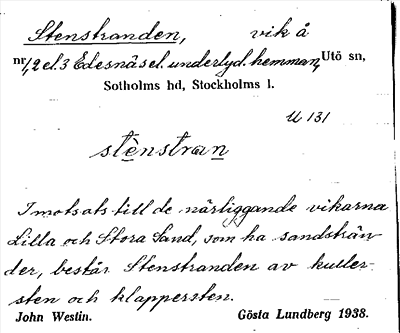 Stenstranden, vik å
nr 1,2 el. 3 Edesnäs el. underlyd. hemman, Utö sn,
Sotholms hd, Stockholms l.
U 131
stènstran
I motsats till de närliggande vikarna
Lilla och Stora Sand, som ha sandsträn-
der, består Stenstranden av kuller-
sten och klappersten.
John Westin. Gösta Lundberg 1938.